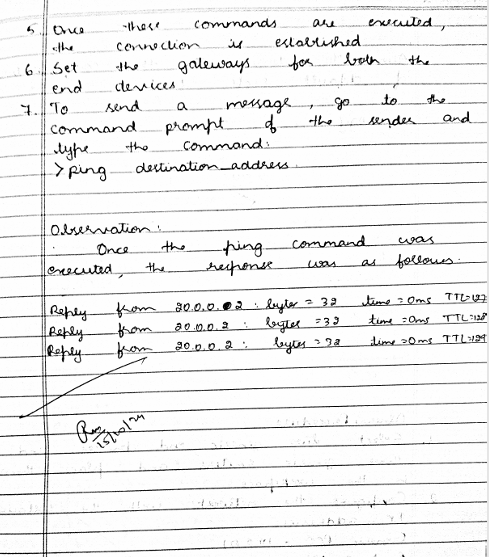 5. Once these commands are executed,
the connection is established
6. Set the gateways for both the
end devices
7. To send a message, go to the
command prompt of the sender and
type the command:
> ping destination_address.
Observation:
Once the ping command was
executed, the response was as follows.
Reply from 20.0.0.2: bytes = 32 time = 0ms TTL=127
Reply from 20.0.0.2: bytes = 32 time = 0ms TTL=128
Reply from 20.0.0.2: bytes = 32 time = 0ms TTL=129